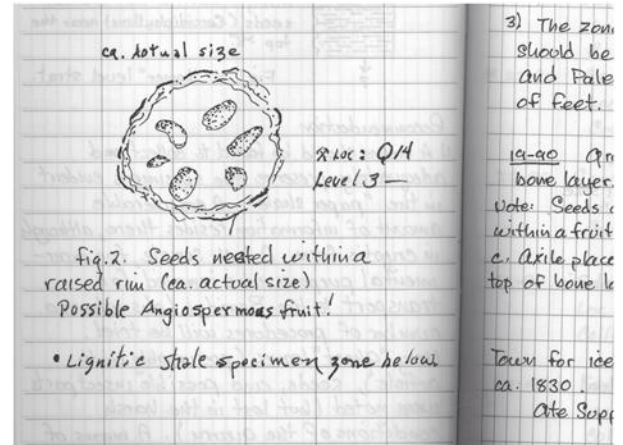 ca. Actual size
Loc: Q14
Level 3 —
fig. 2. Seeds nested within a
raised rim (ca. actual size)
Possible Angiospermous fruit!
• Lignitic shale specimen zone below
3) The zon
should be
and Pale
of feet.
19-90 Gr
bone layer.
Note: Seeds
within a fruit
c. axile place
top of bone l
Town for ice
ca. 1830.
Ate Supp